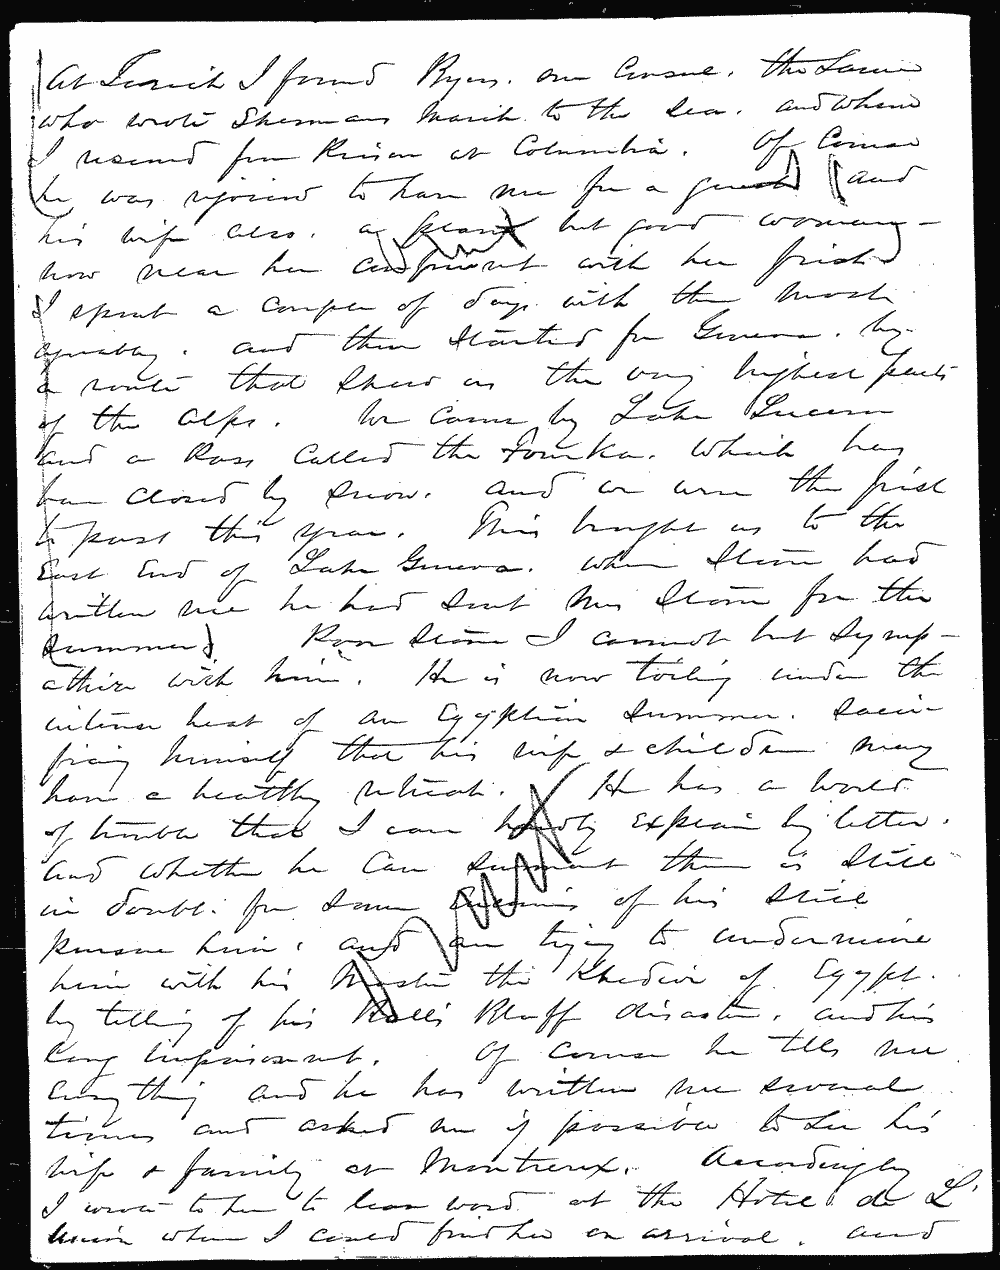 At Zurich I found Byers, our Consul, the same
who wrote Shermans March to the Sea, and whom
I rescued from Prison at Columbia. Of Course
he was rejoiced to have me for a guest and
his wife also, a but good woman -
now near her confinement with her first.
I spent a couple of days with them most
agreeably, and then started for Geneva, by
a route that shew us the very highest parts
of the Alps. We came by Lake Lucern
and a Pass called the Fourka, which has
been closed by snow, and we were the first
to pass this year. This brought us to the
East End of Lake Geneva, where Stone had
written me he had sent Mrs Stone for the
summer. Poor Stone I cannot but symp-
athise with him. He is now toiling under the
intense heat of an Egyptian summer, sacri-
ficing himself that his wife & children may
have a healthy retreat. He has a world
of trouble that I can hardly explain by letter,
and whether he can surmount them is still
in doubt, for some Enemies of his still
pursue him, and are trying to undermine
him with his Master the Khedive of Egypt,
by telling of his Balls Bluff disaster, and his
long imprisonment. Of course he tells me
Every thing and he has written me several
times and asked me if possible to see his
wife & family at Montreux. Accordingly
I wrote to her to leave word at the Hotel de L'
Union where I could find her on arrival, and